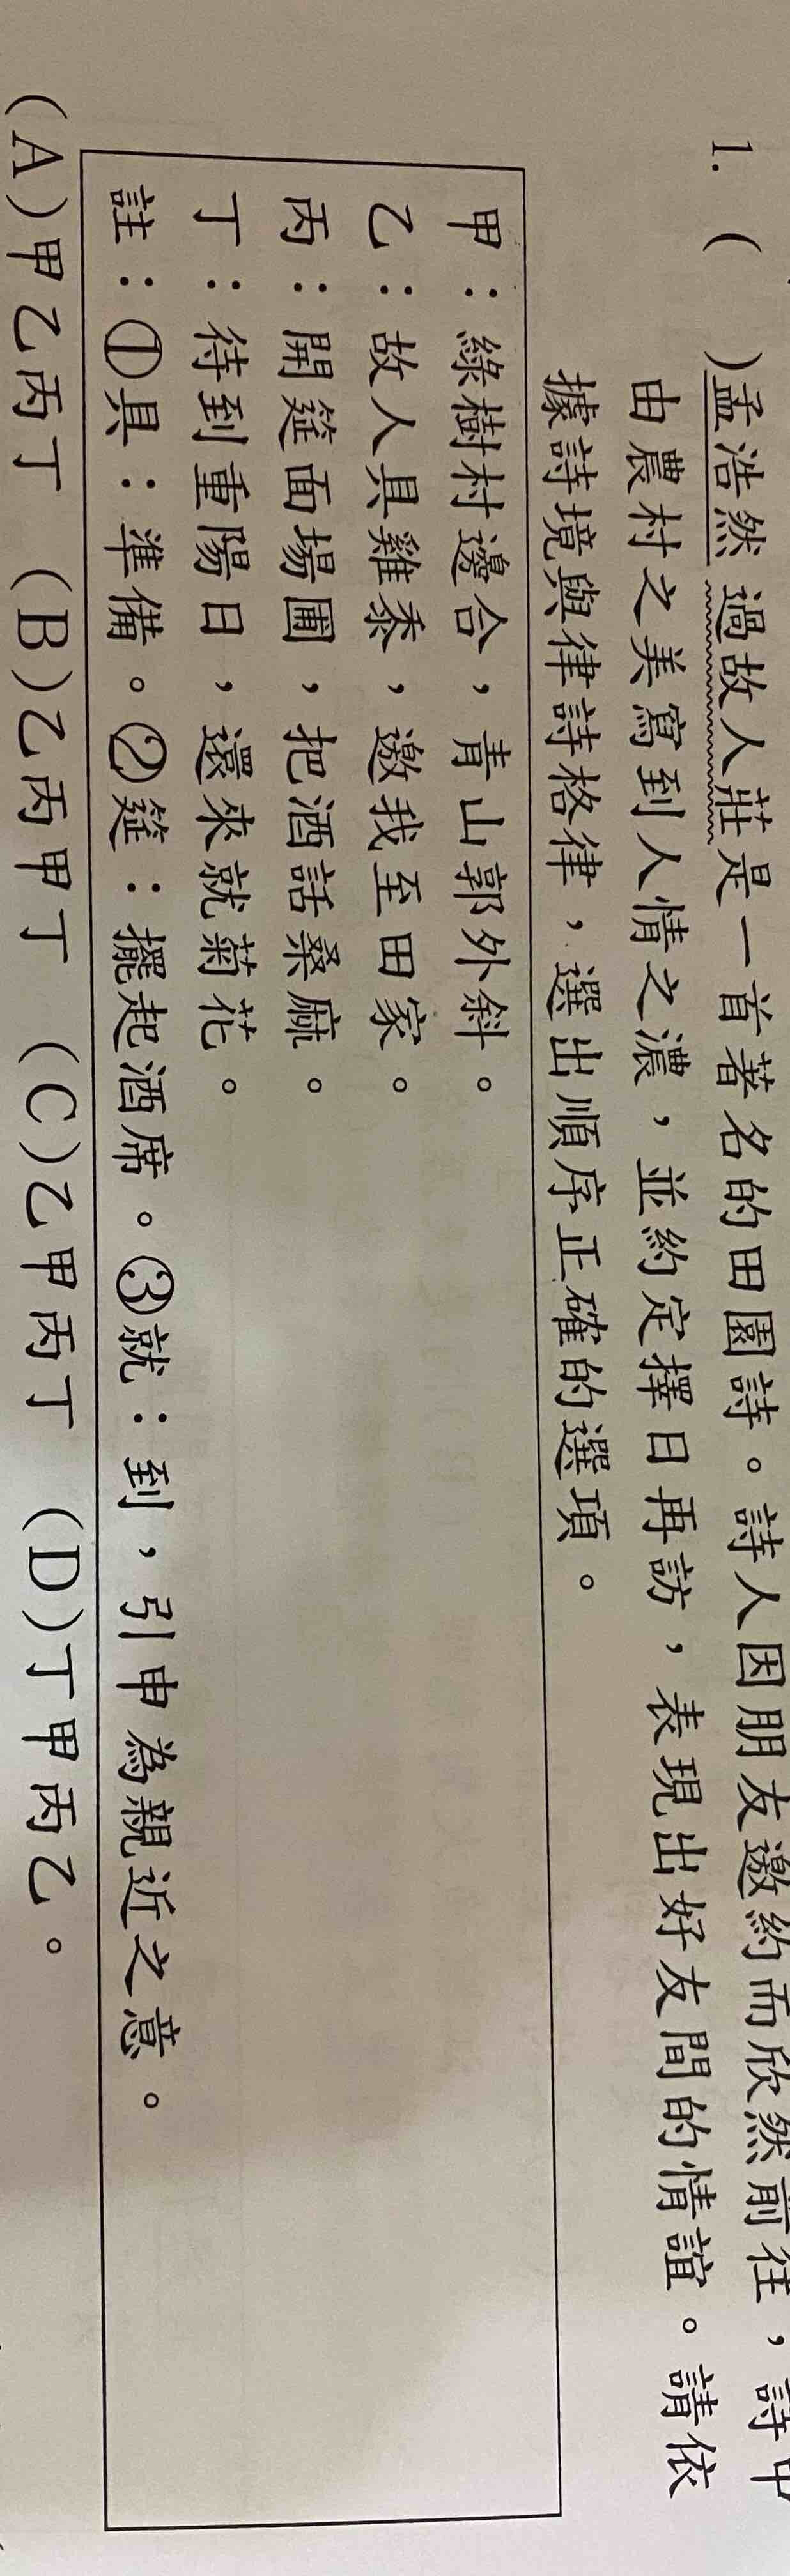 1. (　)孟浩然 過故人莊是一首著名的田園詩。詩人因朋友邀約而欣然前往，詩中
由農村之美寫到人情之濃，並約定擇日再訪，表現出好友間的情誼。請依
據詩境與律詩格律，選出順序正確的選項。
甲：綠樹村邊合，青山郭外斜。
乙：故人具雞黍，邀我至田家。
丙：開筵面場圃，把酒話桑麻。
丁：待到重陽日，還來就菊花。
註：①具：準備。②筵：擺起酒席。③就：到，引申為親近之意。
(A)甲乙丙丁 (B)乙丙甲丁 (C)乙甲丙丁 (D)丁甲丙乙。